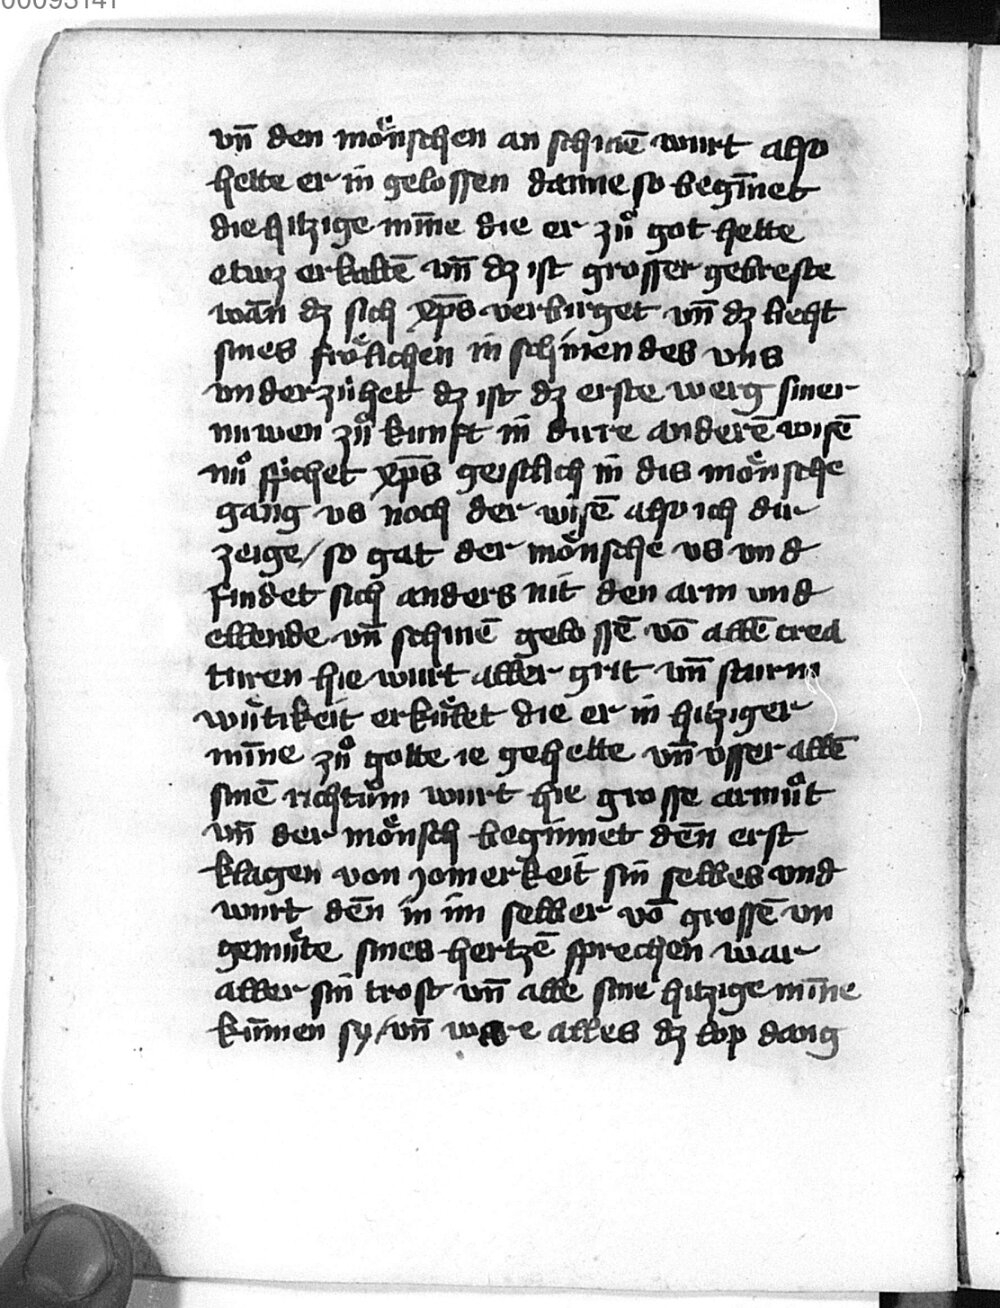 00093141
vn̄ den moͤnschen an schinē wurt also
hette er in gelossen danne so begīnet
die hitzige mīne die er zuͦ got hette
etwz erkaltē vn̄ dz ist grosser gebreste
wān dz sich xp̄s verbirget vn̄ dz lieht
sines froͤlichen in schinendes vns
vnderzühet dz ist dz erste werg siner
nuwen zuͦ kunft in dirre anderē wisē
nuͦ sprichet xp̄s geistlich in dis moͤnsche
gang vs noch der wisē also ich dir
zeige / so gat der moͤnsche vs vnd
findet sich anders nit den arm vnd
ellende vn̄ schinē gelossē vō allē crea
turen hie wurt aller grit vn̄ sturm
wuͤtikeit erkuͤlet die er in hitziger
mīne zuͦ gotte ie gehette vn̄ vsser allē
sinē richtuͦm wurt hie grosse armuͦt
vn̄ der moͤnsch beginnet dēn erst
klagen von jomerkeit sin selbes vnd
wurt dēn in im selber vō grossē vn
gemuͤte sines hertzē sprechen war
aller sin trost vn̄ alle sine hitzige mīne
kūmen sy / vn̄ were alles dz lop dang